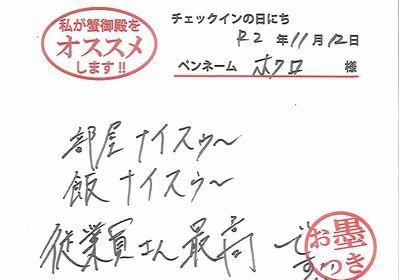 私が蟹御殿を
オススメ
します!!
チェックインの日にち
R2年11月12日
ペンネーム ホクロ 様
部屋ナイスゥ〜
飯ナイスゥ〜
従業員さん最高です!!
お墨つき